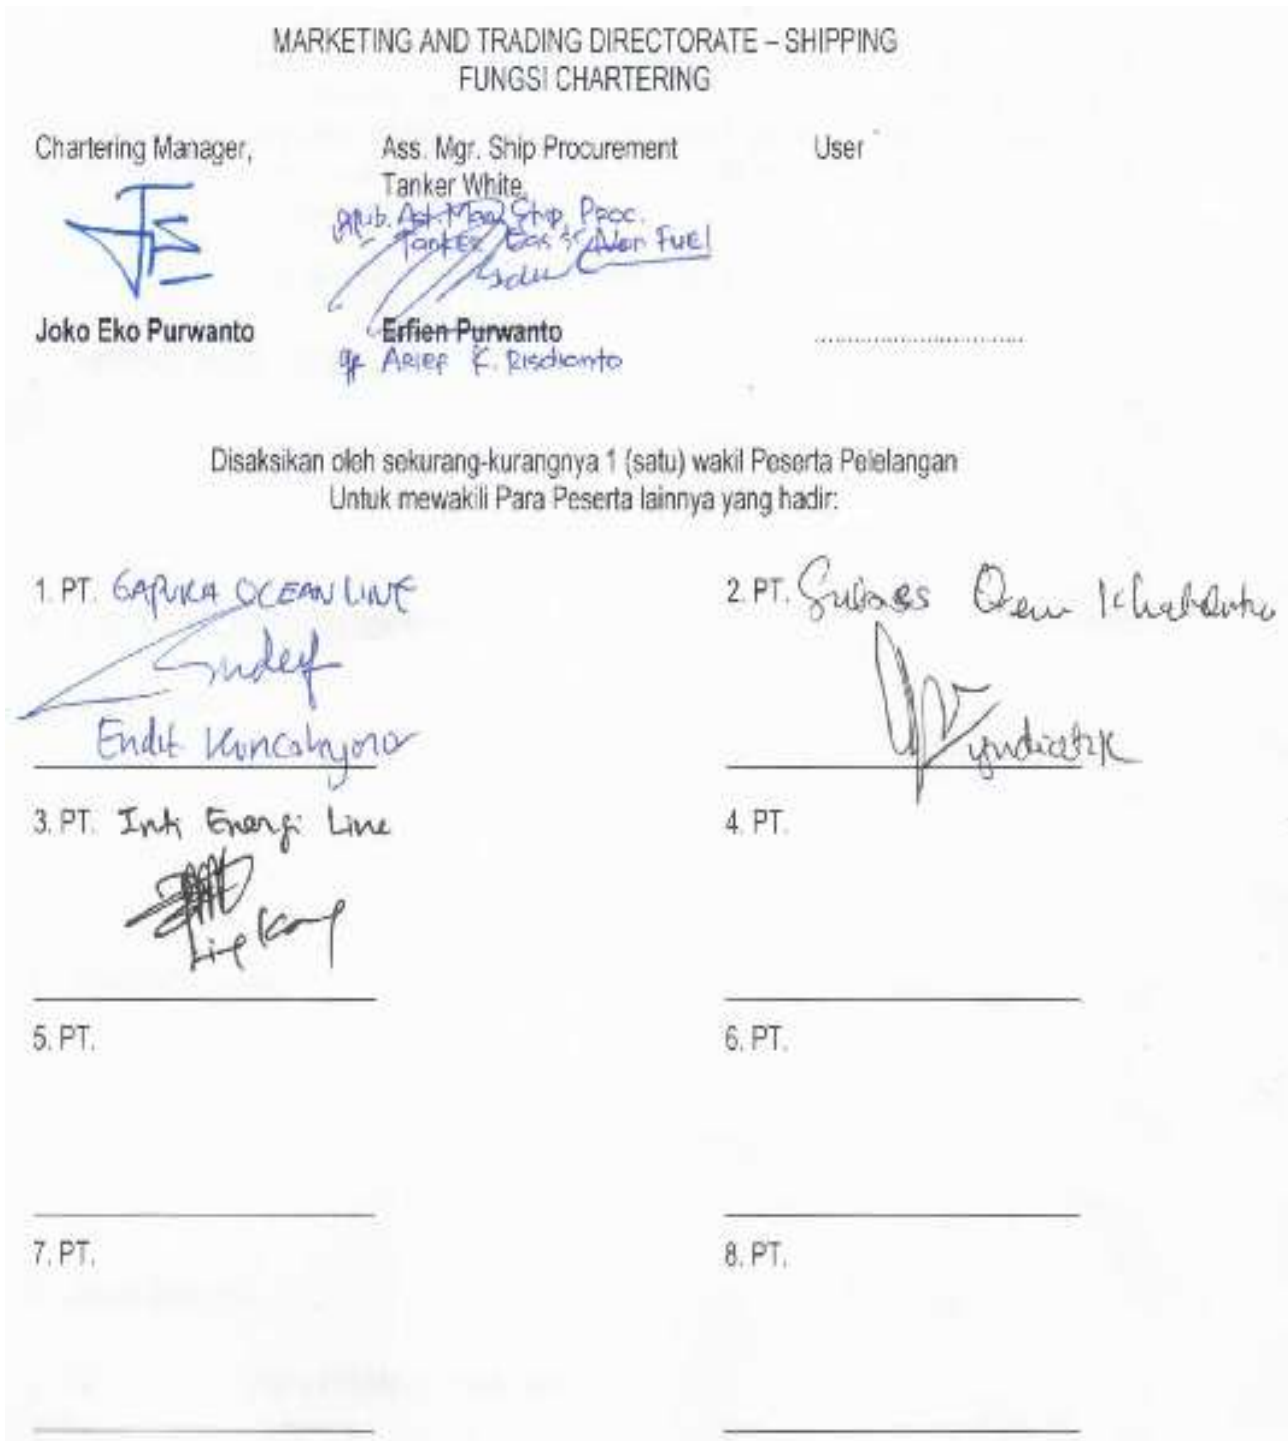 MARKETING AND TRADING DIRECTORATE – SHIPPING
FUNGSI CHARTERING
Chartering Manager,
Ass. Mgr. Ship Procurement
Tanker White,
Ship Proc.
Tanker Gas & Non Fuel
User
Joko Eko Purwanto
Erfien Purwanto
Arief K. Risdianto
........................
Disaksikan oleh sekurang-kurangnya 1 (satu) wakil Peserta Pelelangan
Untuk mewakili Para Peserta lainnya yang hadir:
1. PT. GAPURA OCEAN LINE
Endit Kuncahyono
2. PT.
3. PT. Inti Energi Line
4. PT.
5. PT.
6. PT.
7. PT.
8. PT.